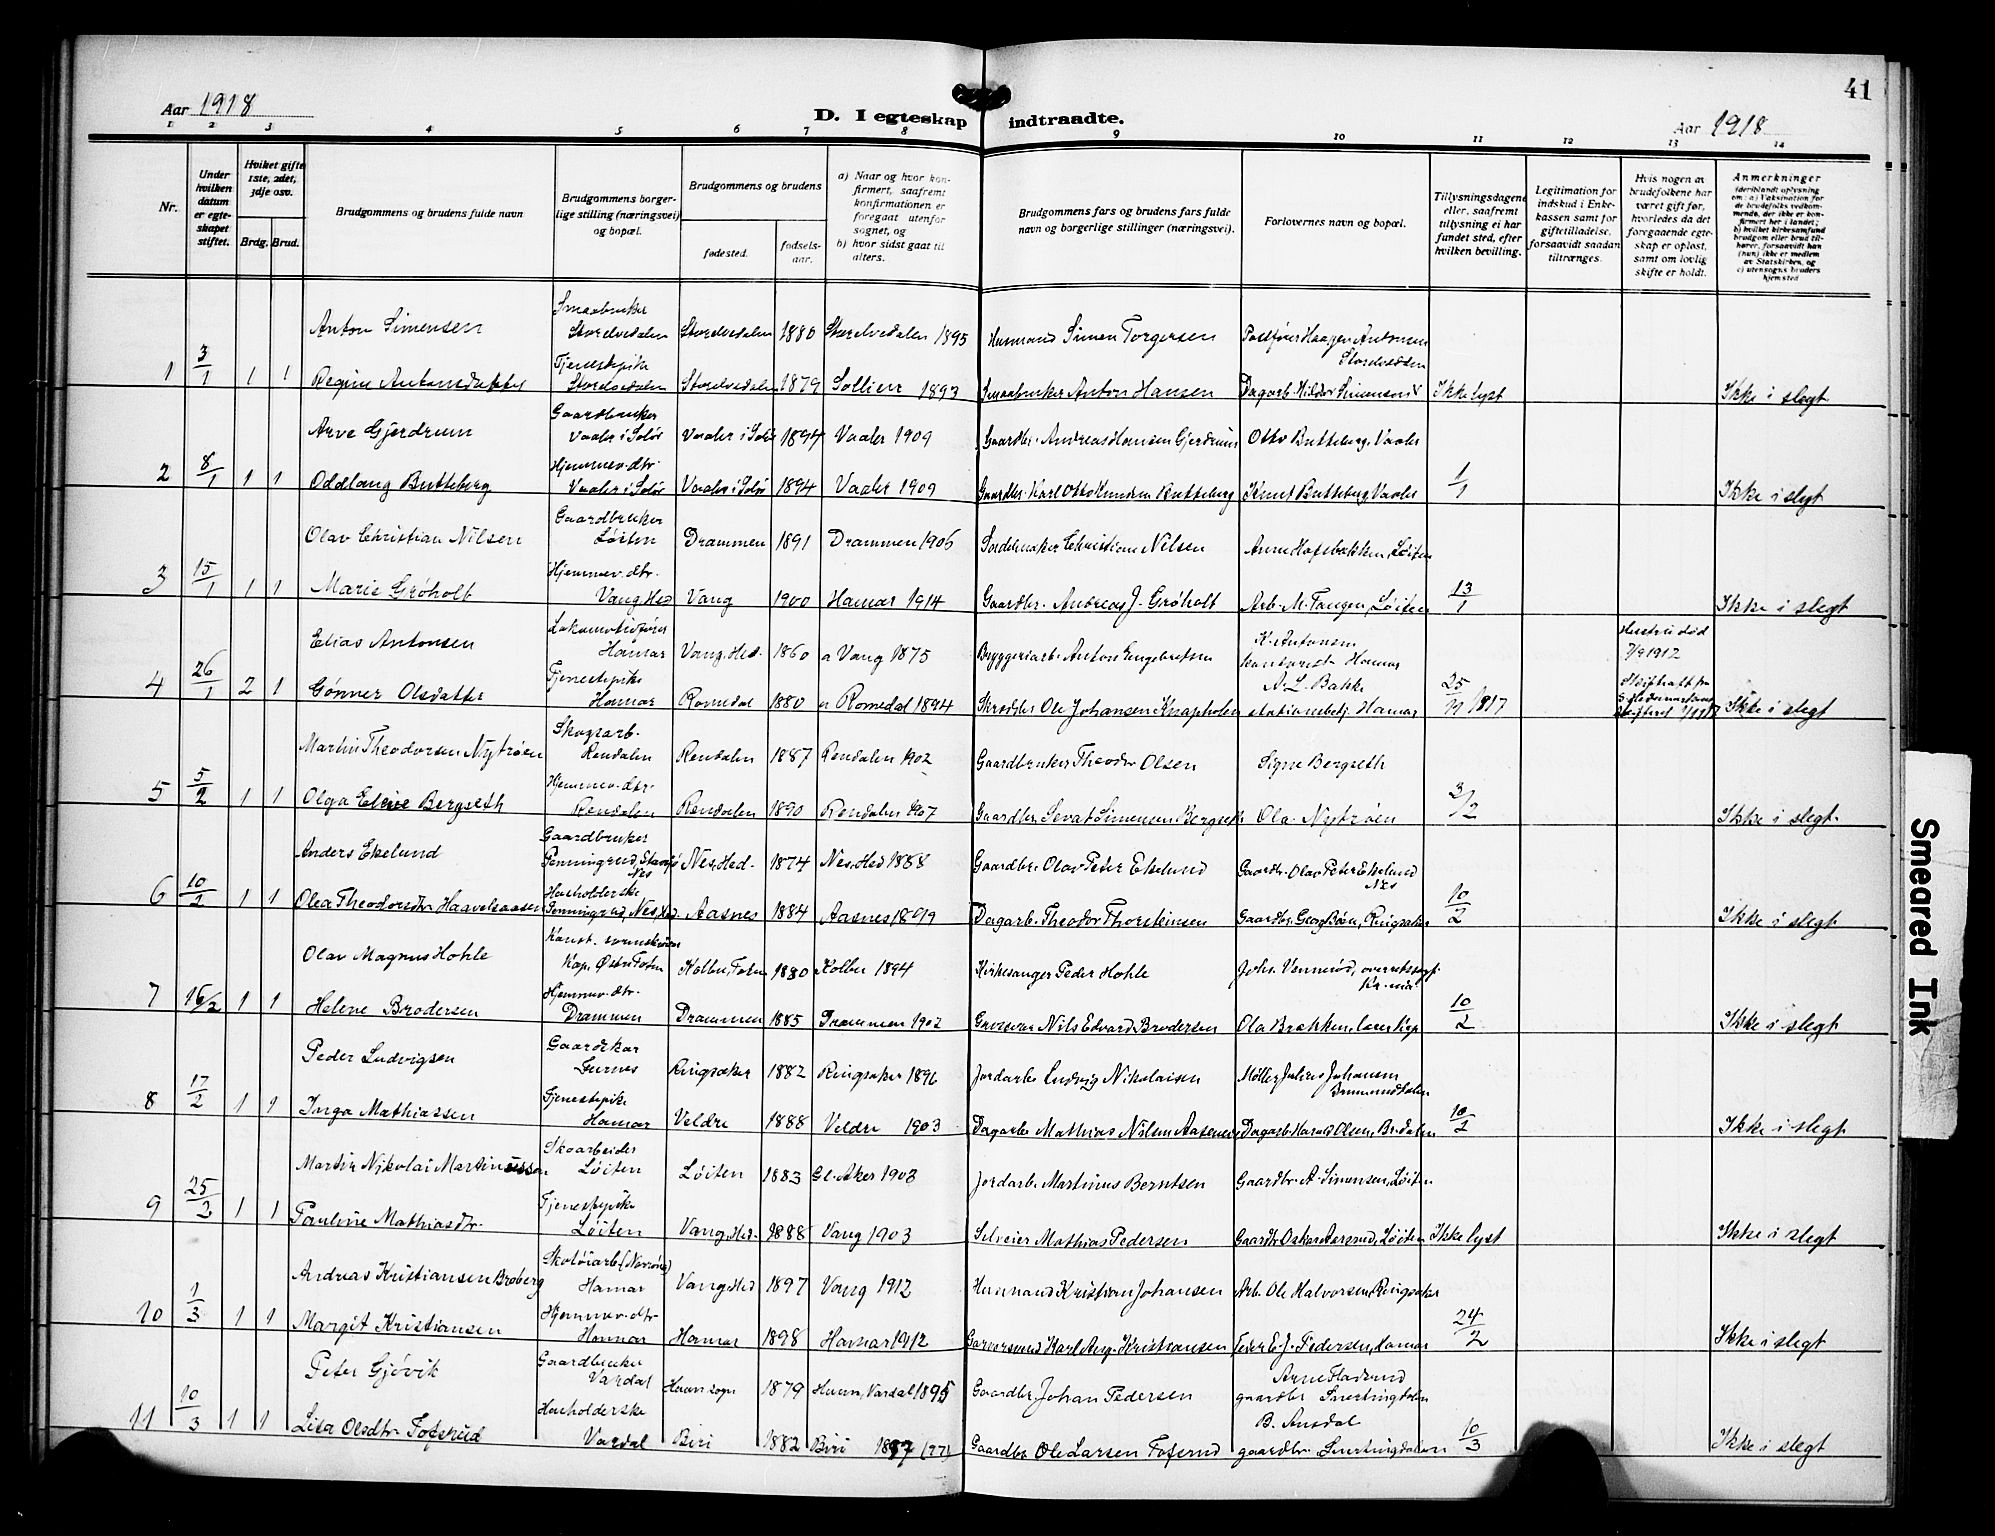 41
Aar 1918
D. I egteskap indtraadte.
Aar 1918
1 2 3 4 5 6 7 8 9 10 11 12 13 14
Nr.
Under hvilken datum er egteskapet stiftet.
Hvilket gifte 1ste, 2det, 3dje osv.
Brdg. Brud.
Brudgommens og brudens fulde navn
Brudgommens borgerlige stilling (næringsvei) og bopæl.
Brudgommens og brudens
fødested.
fødselsaar.
a) Naar og hvor konfirmert, saafremt konfirmationen er foregaat utenfor sognet, og
b) hvor sidst gaat til alters.
Brudgommens fars og brudens fars fulde navn og borgerlige stillinger (næringsvei).
Forlovernes navn og bopæl.
Tillysningsdagene eller, saafremt tillysning ei har fundet sted, efter hvilken bevilling.
Legitimation for indskud i Enkekassen samt for giftetilladelse, forsaavidt saadan tiltrænges.
Hvis nogen av brudefolkene har været gift før, hvorledes da det foregaaende egteskap er opløst, samt om lovlig skifte er holdt.
Anmerkninger
(deriblandt oplysning om: a) Vaksination for de brudefolks vedkommende, der ikke er konfirmert her i landet; b) hvilket kirkesamfund brudgom eller brud tilhører, forsaavidt han (hun) ikke er medlem av Statskirken, og c) utensogns bruders hjemsted
Anton Simensen Smaabruker Storelvedalen Storelvedalen 1880 Storelvedalen 1895 Husmand Simen Torgersen Postfører Haagen Antonsen Storelvedalen
1 3/1 1 1 Regine Antonsdatter Tjenestepike Storelvedalen Storelvedalen 1879 Sollien 1893 Smaabruker Anton Hansen Dagarb. Hildor Simensen Ikke lyst Ikke i slegt
Arve Gjerdrum Gaardbruker Vaaler i Solør Vaaler i Solør 1894 Vaaler 1909 Gaardbr. Andreas Hansen Gjerdrum Otto Butteberg, Vaaler
2 8/1 1 1 Oddlaug Butteberg Hjemmev. dtr. Vaaler i Solør Vaaler i Solør 1894 Vaaler 1909 Gaardbr. Karl Otto Knudsen Butteberg Knut Butteberg, Vaaler 1/1 Ikke i slegt
Olav Christian Nilsen Gaardbruker Løiten Drammen 1891 Drammen 1906 Sadelmaker Christian Nilsen Arne Hofsbakken, Løiten
3 15/1 1 1 Marie Grøholt Hjemmev. dtr. Vang, Hed Vang 1900 Hamar 1914 Gaardbr. Andreas J. Grøholt Arb. M. Tangen, Løiten 13/1 Ikke i slegt
Elias Antonsen Lokomotivfører Hamar Vang, Hed. 1860 a Vang 1875 Bryggeriarb. Anton Engebretsen K. Antonsen kontorist Hamar Hustru død 7/9 1912
4 26/1 2 1 Gønner Olsdatter Tjenestepike Hamar Romedal 1880 a Romedal 1894 Skrædder Ole Johansen Knapholen A. L. Bakke stationsbetj. Hamar 25/11 1917 Ikke i slegt
Martin Theodorsen Nytrøen Skogsarb. Rendalen Rendalen 1887 Rendalen 1902 Gaardbruker Theodor Olsen Signe Bergseth
5 5/2 1 1 Olga Eline Bergseth Hjemmev. dtr. Rendalen Rendalen 1890 Rendalen 1907 Gaardbr. Sevat Simensen Bergseth Ola Nytrøen 3/2 Ikke i slegt.
Anders Ekelund Gaardbruker Penningrud, Stavsjø Nes Nes, Hed. 1874 Nes, Hed 1888 Gaardbr. Olav Peter Ekelund Gaardbr. Olav Peter Ekelund Nes
6 10/2 1 1 Olea Theodorsdtr. Haavelsaasen Husholderske Penningrud, Nes, Hed. Aasnes 1884 Aasnes 1899 Dagarb. Theodor Thorsteinsen Gaardbr. Georg Boen, Ringsaker 10/2 Ikke i slegt
Olav Magnus Hohle Kap, Østre Toten Kolbu, Toten 1880 Kolbu 1894 Kirkesanger Peder Hohle Johs. Vennerød, overretssagf. Kr.ania
7 16/2 1 1 Helene Brodersen Hjemmev. dtr. Drammen Drammen 1885 Drammen 1902 Grosserer Nils Edvard Brodersen Ola Brækken, lærer Kap 10/2 Ikke i slegt
Peder Ludvigsen Gaardskar Furnes Ringsaker 1882 Ringsaker 1896 Jordarb. Ludvig Nikolaisen Møller Julius Johansen Brumunddalen
8 17/2 1 1 Inga Mathiassen Tjenestepike Hamar Veldre 1888 Veldre 1903 Dagarb. Mathias Nilsen Aasenseie Dagarb. Harald Olsen, Br.dalen 10/2 Ikke i slegt
Martin Nikolai Martinussen Skoarbeider Løiten Løiten 1883 Gl. Aker 1903 Jordarb. Martinus Berntsen Gaardbr. A. Simensen, Løiten
9 25/2 1 1 Pauline Mathiasdtr. Tjenestepike Løiten Vang, Hed. 1888 Vang 1903 Selveier Mathias Pedersen Gaardbr. Oskar Aarsrud, Løiten Ikke lyst Ikke i slegt
Andreas Kristiansen Broberg Skotøiarb. (Norrøna) Hamar Vang, Hed 1897 Vang 1912 Husmand Kristian Johansen Arb. Ole Halvorsen, Ringsaker
10 1/3 1 1 Margit Kristiansen Hjemmev. dtr. Hamar Hamar 1898 Hamar 1912 Garversvend Karl Aug. Kristiansen Feier E. J. Pedersen, Hamar 24/2 Ikke i slegt
Peter Gjøvik Gaardbruker Vardal Hunn sogn 1879 Hunn, Vardal 1895 Gaardbr. Johan Pedersen Arne Fladlund gaardbr. Snertingdalen
11 10/3 1 1 Lisa Olsdtr. Fossrud Husholderske Vardal Biri 1882 Biri 1897 (97) Gaardbr. Ole Larsen B. Ausdal gaardbr. Snertingdalen 10/3 Ikke i slegt
Smeared Ink